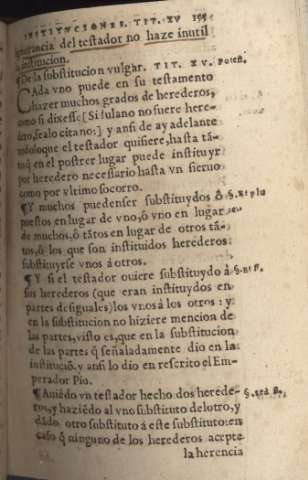 INSTITVCIONES. TIT. XV 195
ignorancia del testador no haze inutil
la institucion.
¶De la substitucion vulgar. TIT. XV.
CAda vno puede en su testamento Potest.
hazer muchos grados de herederos,
como si dixesse: [Si fulano no fuere here-
dero, sealo citano:] y ansi de ay adelante
todo loque el testador quisiere, hasta tã-
to q̃ en el postrer lugar puede instituyr
por heredero necessario hasta vn sieruo
como por vltimo socorro.
¶Y muchos puedenser substituydos ò §.
puestos en lugar de vno, ò vno en lugar
de muchos, ò tãtos en lugar de otros tã-
tos, ò los que son instituidos herederos
substituyrse vnos á otros.
¶Y si el testador ouiere substituydo à §.
sus herederos (que eran instituydos en
partes desiguales) los vnos á los otros: y
en la substitucion no hiziere mencion de
las partes, visto es, que en la substitucion
de las partes q̃ señaladamente dio en la
institució. y ansi lo dio en rescrito el Em-
perador Pio.
¶Auiẽdo vn testador hecho dos herede- §. sed si.
ros, y haziẽdo al vno substituto delotro, y
dãdo otro substituto á este substituto: en
caso q̃ ninguno de los herederos acepte
la herencia